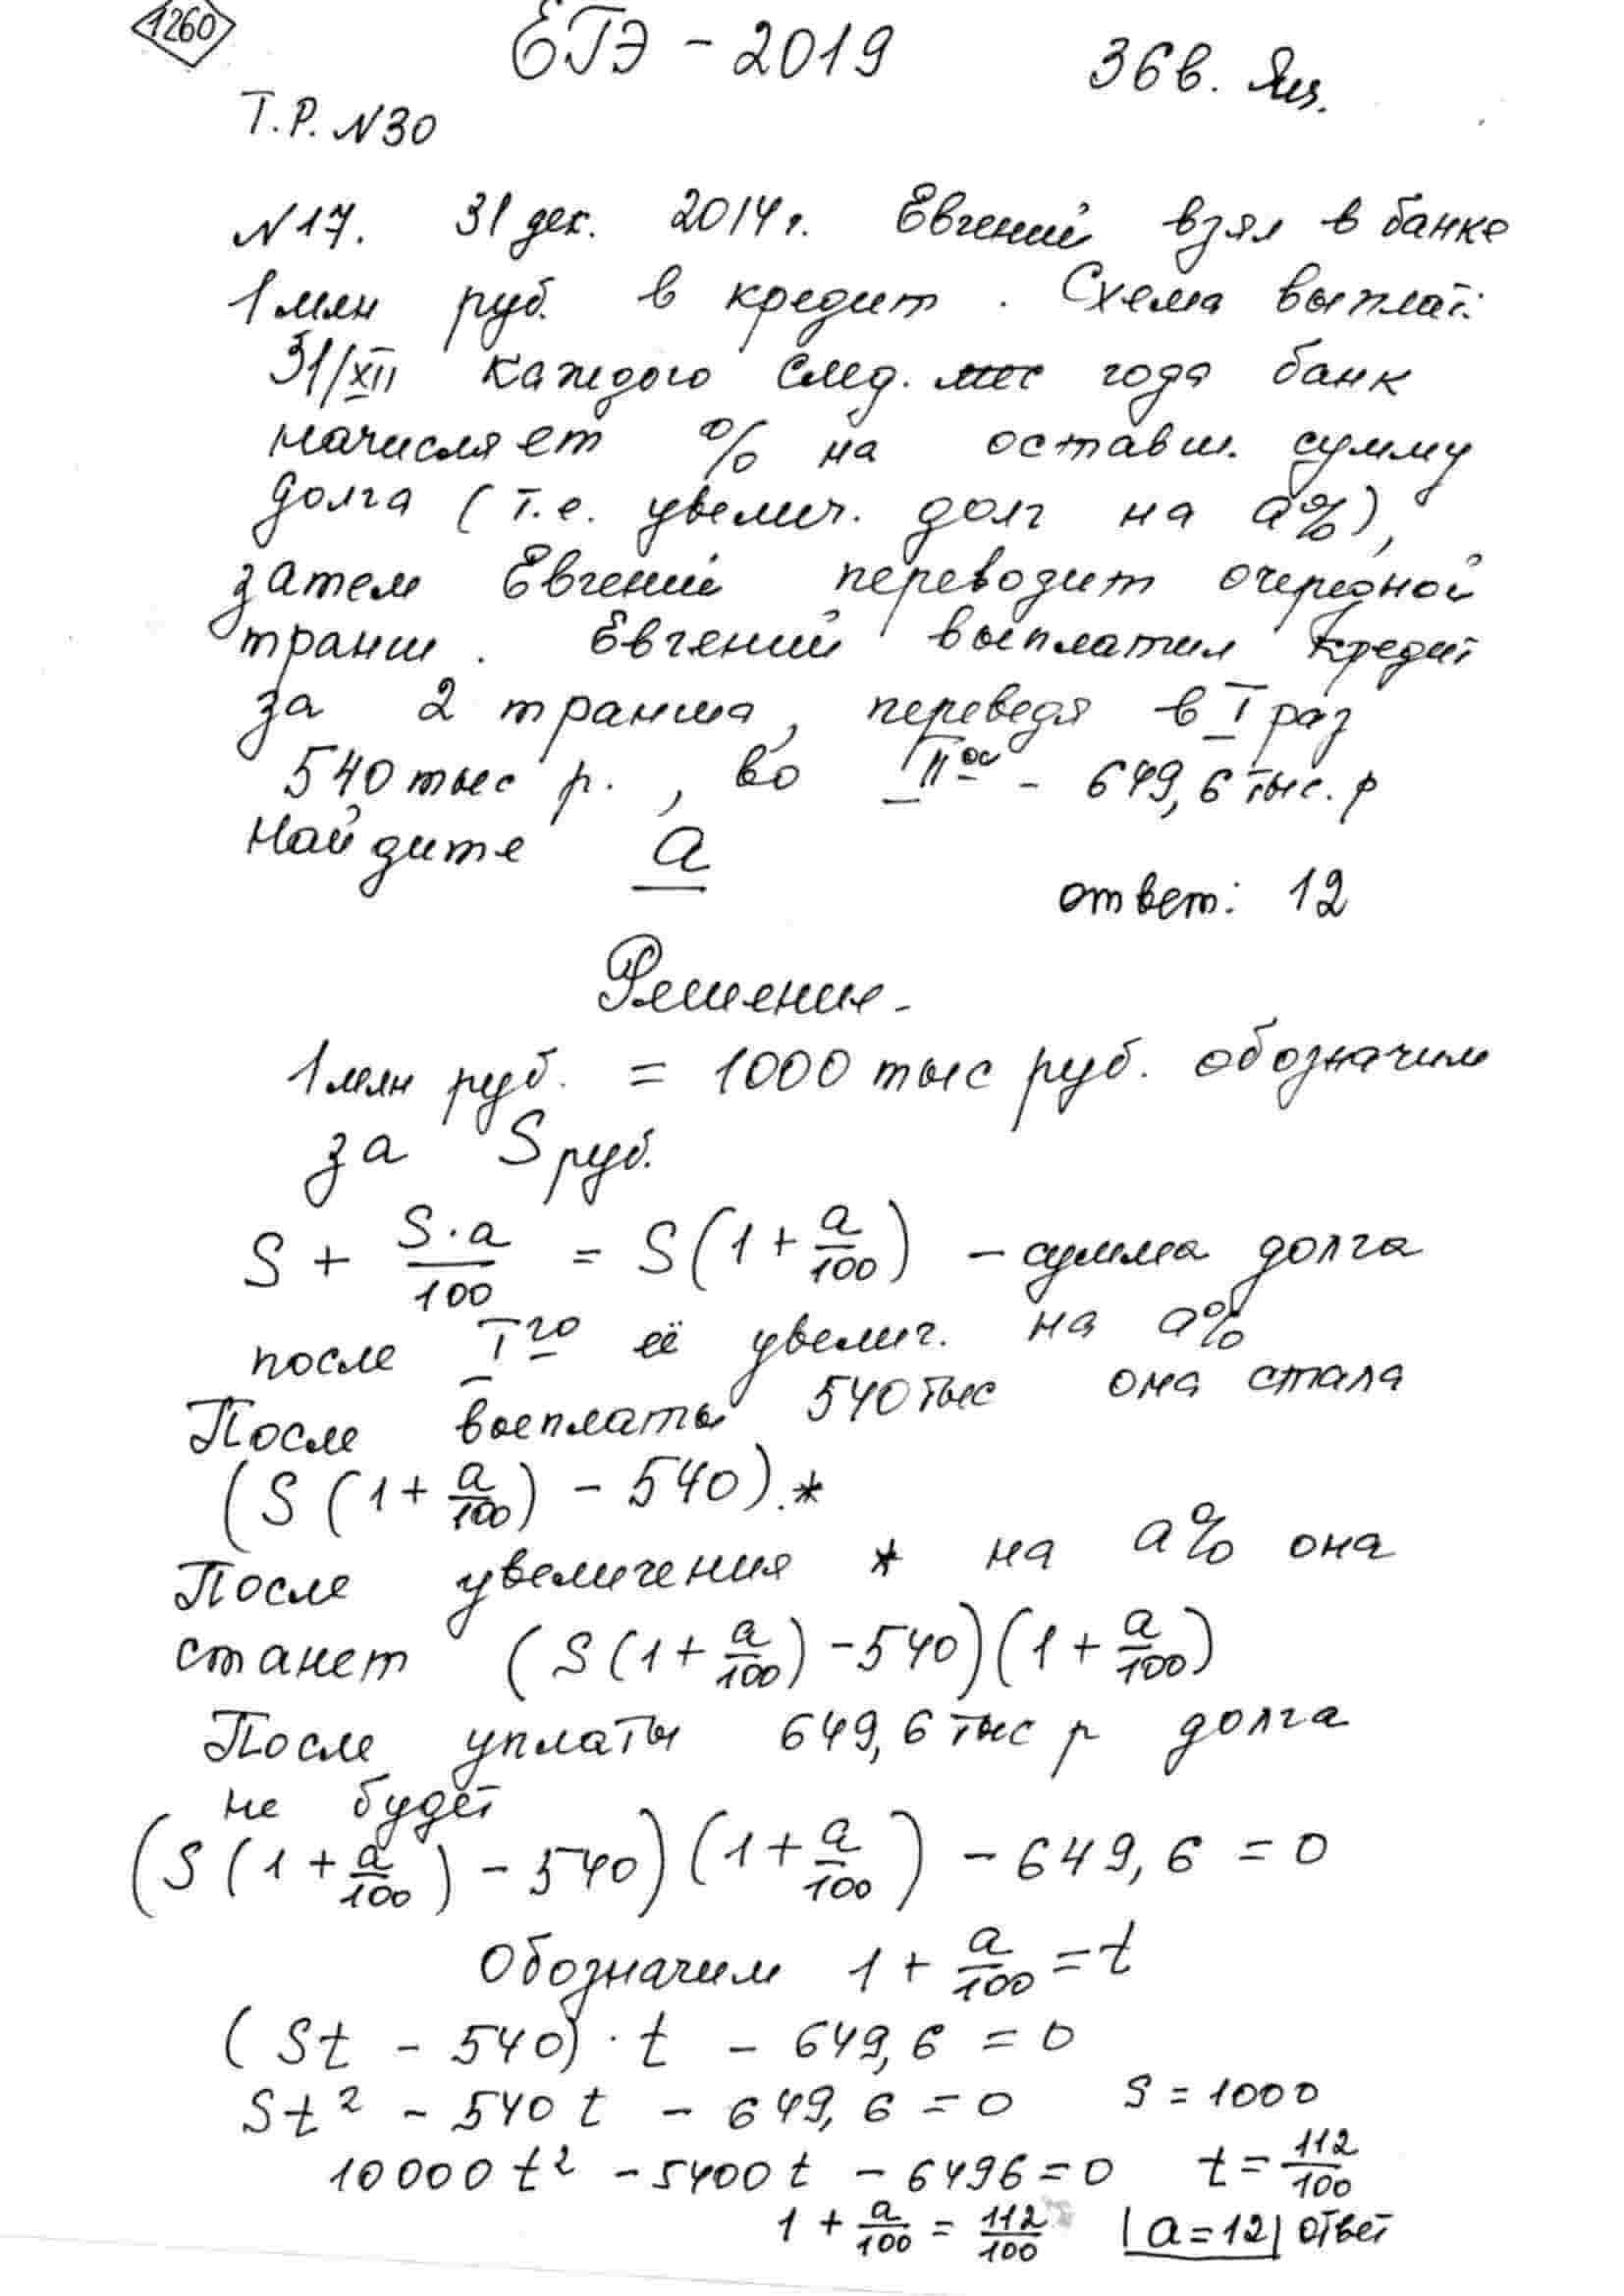 1260
ЕГЭ - 2019
36в. Ян.
Т.Р. N30
N17. 31 дек. 2014г. Евгений взял в банке
1 млн руб. в кредит. Схема выплат:
31/XII каждого след. мес года банк
начисляет % на оставш. сумму
долга (т.е. увелич. долг на a%),
затем Евгений переводит очередной
транш. Евгений выплатил кредит
за 2 транша, переведя в I раз
540 тыс р., во II ой - 649,6 тыс. р
Найдите a
ответ: 12
Решение -
1 млн руб. = 1000 тыс руб. обозначим
за S руб.
S + S·a/100 = S(1 + a/100) - сумма долга
после I го её увелич. на a%
После выплаты 540 тыс она стала
(S(1 + a/100) - 540).*
После увеличения * на a% она
станет (S(1 + a/100) - 540)(1 + a/100)
После уплаты 649,6 тыс р долга
не будет
(S(1 + a/100) - 540)(1 + a/100) - 649,6 = 0
Обозначим 1 + a/100 = t
(St - 540)·t - 649,6 = 0
St² - 540t - 649,6 = 0 S = 1000
10000t² - 5400t - 6496 = 0 t = 112/100
1 + a/100 = 112/100 |a = 12| ответ